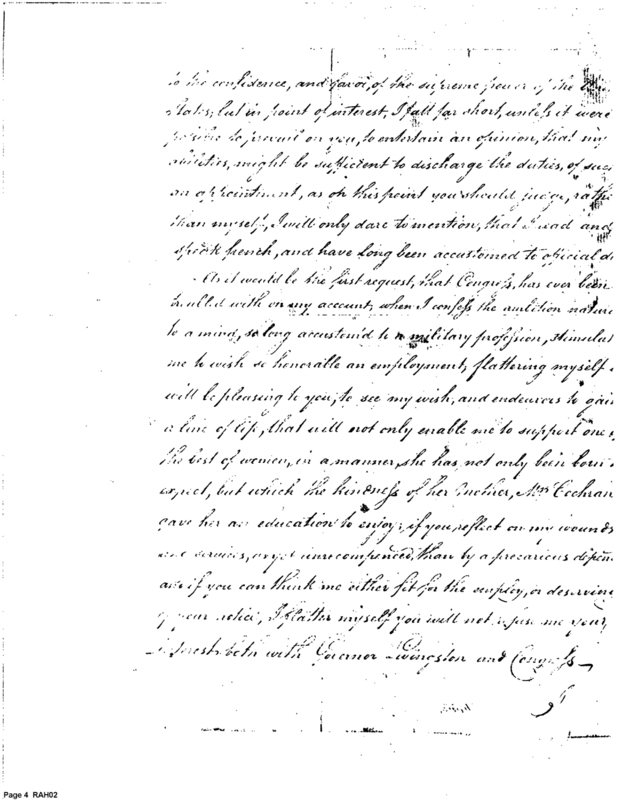 to the confidence, and favor, of the supreme power of the
States; but in point of interest, I fall far short, unless it were
possible to prevail on you, to entertain an opinion, that my
abilities, might be sufficient to discharge the duties, of suc
an appointment, as on this point you should judge, rathe
than myself, I will only dare to mention, that I read and
speak french, and have long been accustomed to official d
As it would be the first request, that Congress, has ever been
with on my account, when I confess the ambition nature
to a mind, so long accustom'd to a military profession, stimulat
me to wish so honorable an employment, flattering myself
will be pleasing to you, to see my wish, and endeavors to gain
a line of life, that will not only enable me to support one
the best of women, in a manner, she has not only been born
expect, but which the kindness of her Mother, Mrs. Cochran
gave her an education to enjoy; if you reflect on my wounds
and services, as yet unrecompenced, than by a precarious depen
and if you can think me either fit for the employ, or deserving
of your notice, I flatter myself you will not refuse me your
interest both with Governor Livingston and Congress
Page 4 RAH02